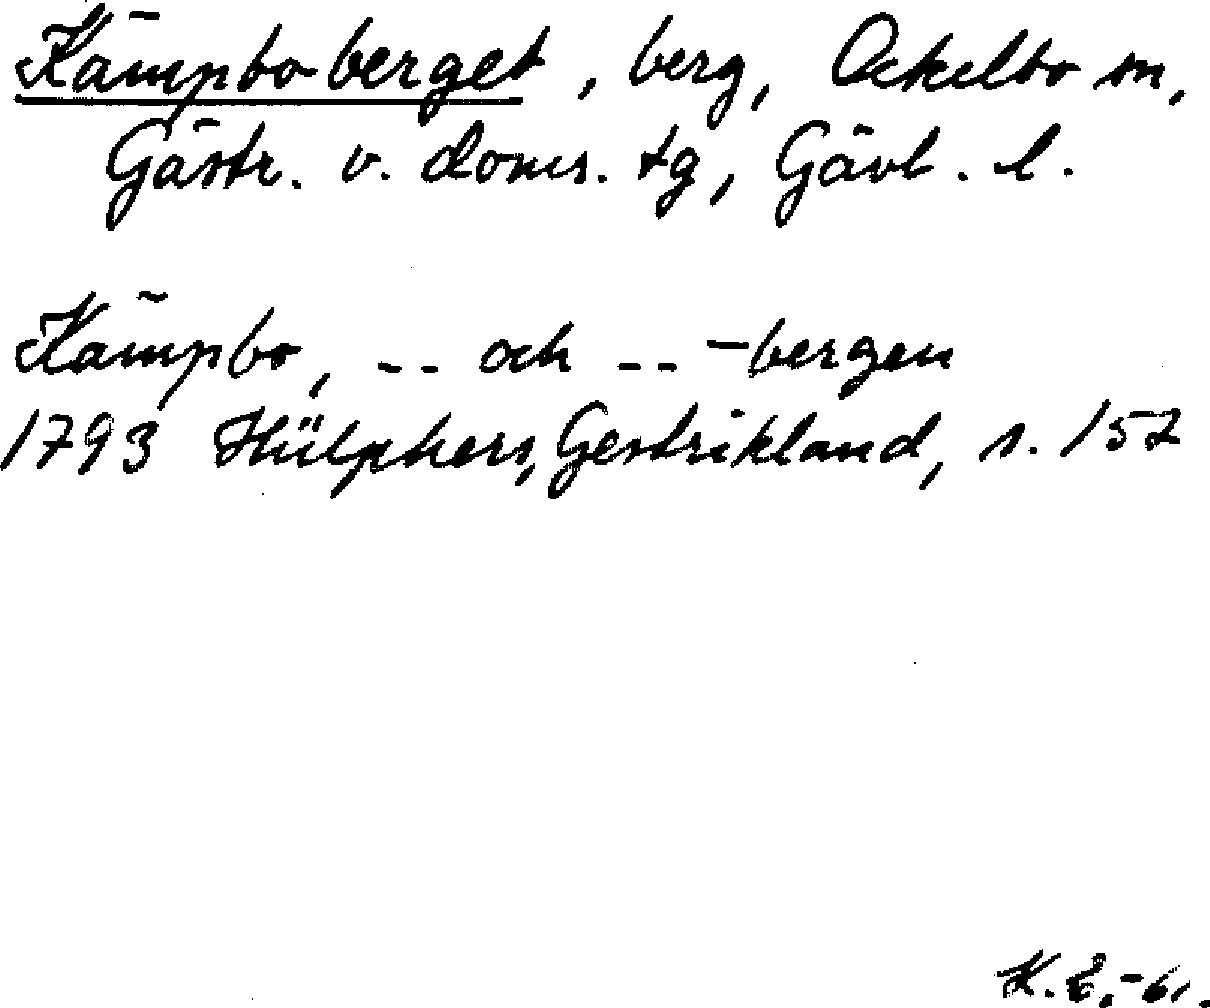 Kämpboberget, berg, Ockelbo sn,
Gästr. v. doms. tg, Gävl. l.
Kämpbo, -- och -- -bergen
1793 Hülphers, Gestrikland, s. 157
K. E. -61.